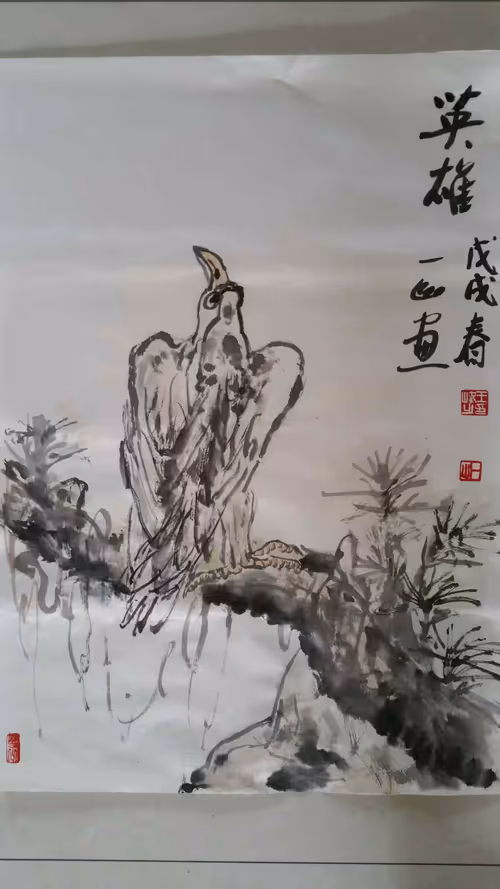 英雄
戊戌春
一山画